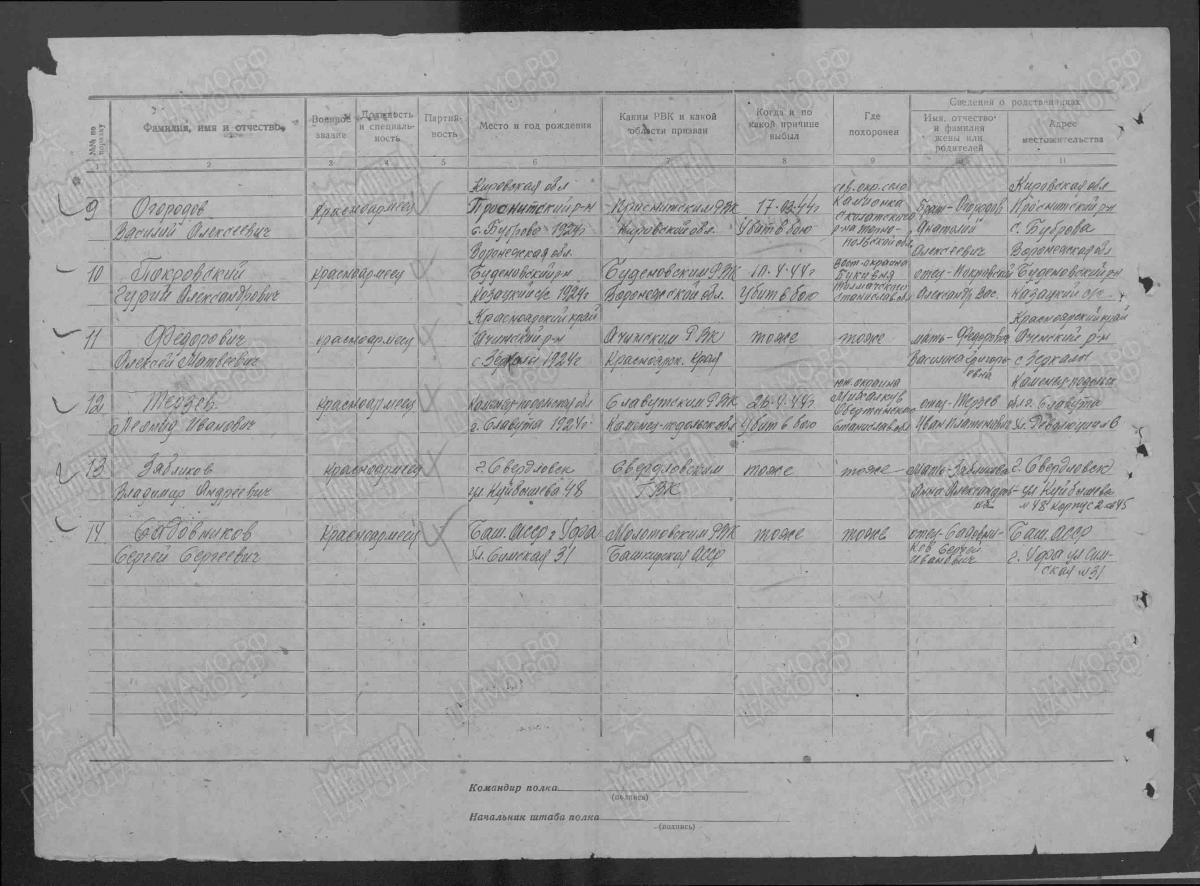 №№ по порядку
Фамилия, имя и отчество
Военное звание
Должность и специальность
Партийность
Место и год рождения
Каким РВК и какой области призван
Когда и по какой причине выбыл
Где похоронен
Сведения о родственниках
Имя, отчество и фамилия жены или родителей
Адрес местожительства
1 2 3 4 5 6 7 8 9 10 11
9
Огородов
Василий Алексеевич
Красноармеец
Кировская обл
Просницкий р-н
с. Буброва 1924г
Просницким РВК
Кировской обл.
17-03-44г
Убит в бою
сев. окр. село
Камионка
Скалатского
р-на Терно-
польской обл
брат-Огородов
Анатолий
Алексеевич
Кировская обл
Просницкий р-н
с. Буброва
10
Покровский
Гурий Александрович
красноармеец
Воронежская обл.
Буденовский р-н
Козацкий с/с 1924г
Буденовским РВК
Воронежской обл.
10-4-44г
Убит в бою
вост-окраина
Буковня
Тлумачского
Станиславск
отец-Покровский
Александр Вас.
Воронежская обл
Буденовский р-н
Казацкий с/с
11
Федорович
Алексей Матвеевич
красноармеец
Красноярский край
Ачинский р-н
1924г
Ачинским РВК
Красноярск. Края
тоже
тоже
мать-Федорович
Василиса Григорь-
евна
Красноярский край
Аченский р-н
с Зеркалы
12
Терзев
Леонид Иванович
красноармеец
Каменец-подольская обл
г. Славута 1924г
Славутским РВК
Каменец-подольск обл
26-4-44г
Убит в бою
юж. окраина
Михалкув
Обертынского
Станислав обл
отец-Терзев
Иван Платинович
Каменец-подольск
обл г. Славута
ул. Революции 6
13
Зябликов
Владимир Андреевич
красноармеец
г. Свердловск
ул Куйбышева 48
Свердловским
ГВК
тоже
тоже
Мать-Зябликова
Анна Александров-
на
г. Свердловск
ул Куйбышева
№48 корпус 2 кв45
14
Садовников
Сергей Сергеевич
Красноармеец
Баш. АССР г Уфа
ул. Симская 31
Молотовским РВК
Башкирская АССР
тоже
тоже
отец-Садовни-
ков Сергей
Иванович
Баш. АССР
г. Уфа ул Сим-
ская №31
Командир полка
(подпись)
Начальник штаба полка
(подпись)
ЦАМО.РФ
ПАМЯТЬ НАРОДА